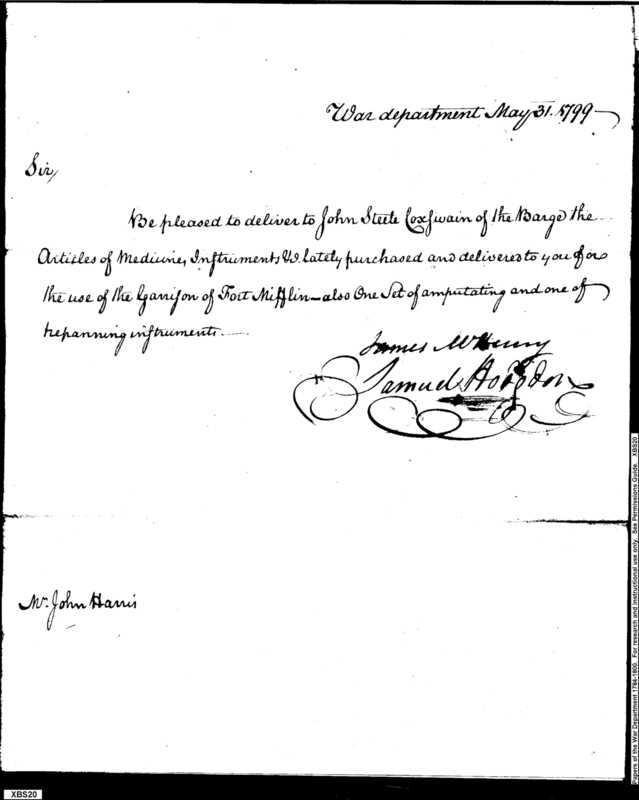 War department May 31. 1799
Sir,
Be pleased to deliver to John Steele Coxswain of the Barge the
Articles of Medicine, Instruments &c. lately purchased and delivered to you for
the use of the Garrison of Fort Mifflin — also One Set of amputating and one of
trepanning instruments. —
James McHenry
Samuel Hodgdon
Mr. John Harris
Papers of the War Department 1784-1800. For research and instructional use only. See Permissions Guide. XBS20
XBS20